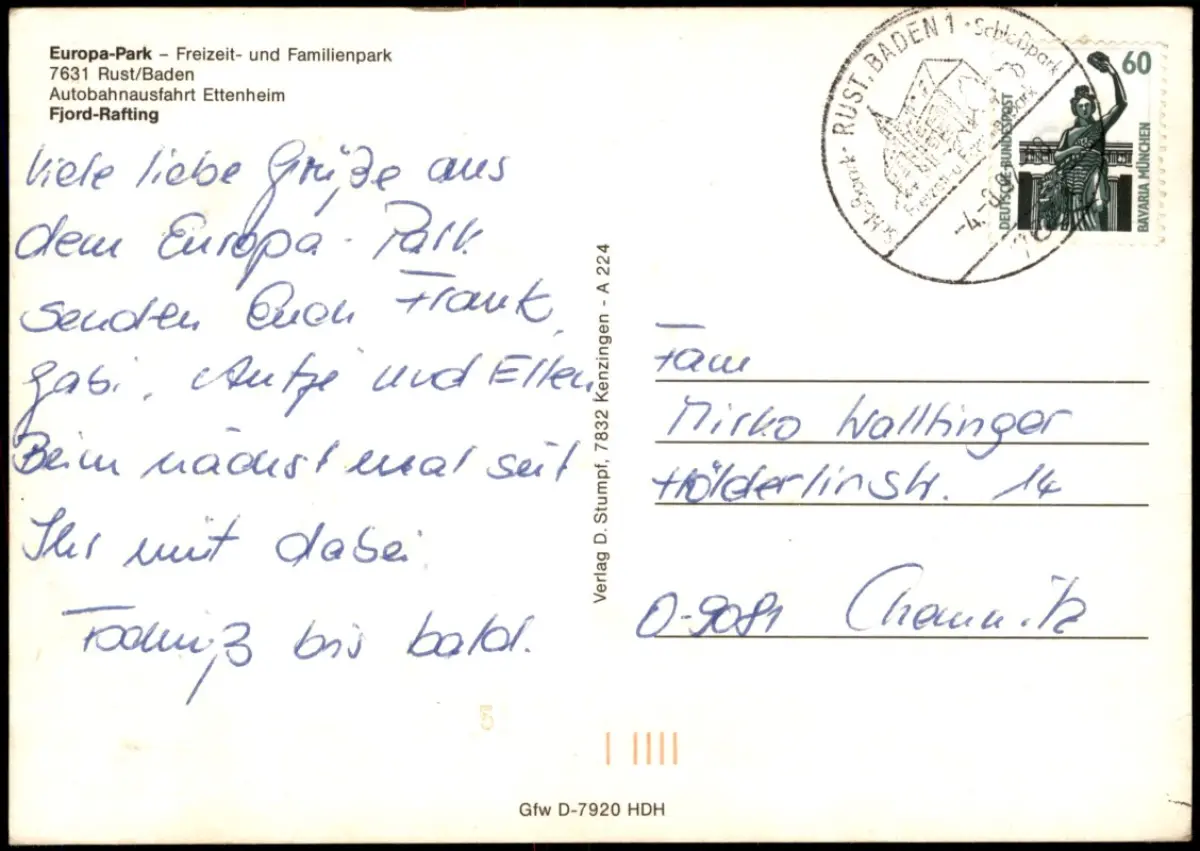 Europa-Park – Freizeit- und Familienpark
7631 Rust/Baden
Autobahnausfahrt Ettenheim
Fjord-Rafting
Viele liebe Grüße aus
dem Europa-Park
senden Euch Frank,
Gabi, Antje und Ellen
Beim nächst mal seit
Ihr mit dabei.
bis bald.
Verlag D. Stumpf, 7832 Kenzingen - A 224
RUST, BADEN 1 · Schloßpark
60
DEUTSCHE BUNDESPOST
BAVARIA MÜNCHEN
Fam
Mirko Wallbinger
Hölderlinstr. 14
O-9081 Chemnitz
Gfw D-7920 HDH